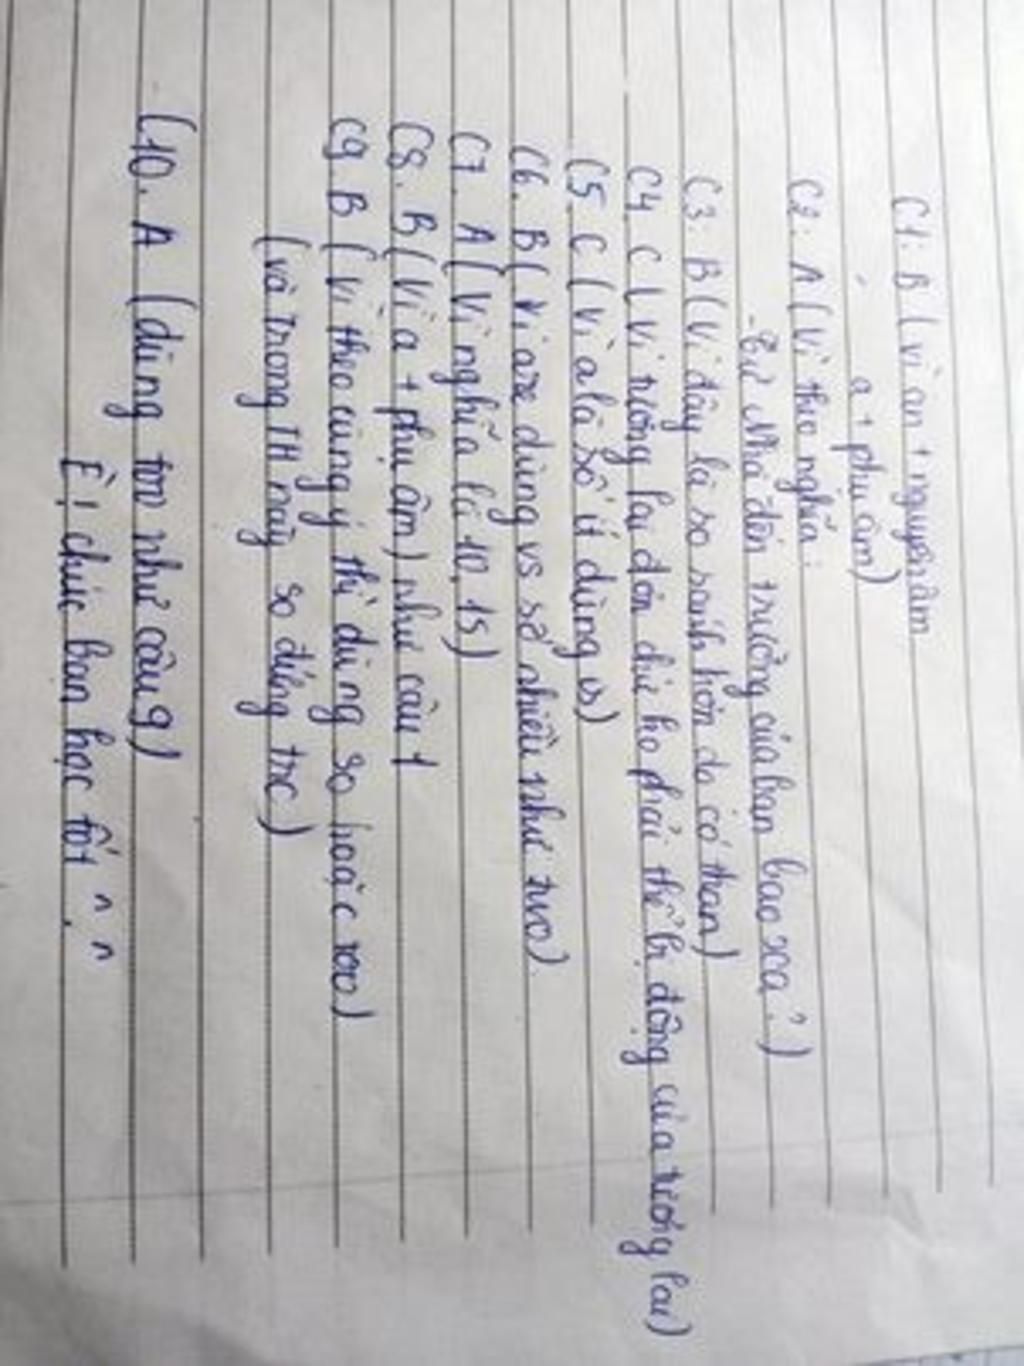 C1: B (vì an + nguyên âm
a + phụ âm)
C2: A (Vì theo nghĩa:
- Từ nhà đến trường của bạn bao xa?)
C3: B (Vì đây là so sánh hơn do có than)
C4. C (Vì tương lai đơn dù họ phải thể bị động của tương lai)
C5. C (Vì a là số ít dùng is)
C6. B (Vì are dùng vs số nhiều như two)
C7. A (Vì nghĩa là 10, 15)
C8. B (Vì a + phụ âm) như câu 1
C9. B (Vì theo cùng ý thì dùng so hoặc too)
(và trong TH này so đứng trc)
C10. A (dùng too như câu 9)
chúc bạn học tốt ^ ^